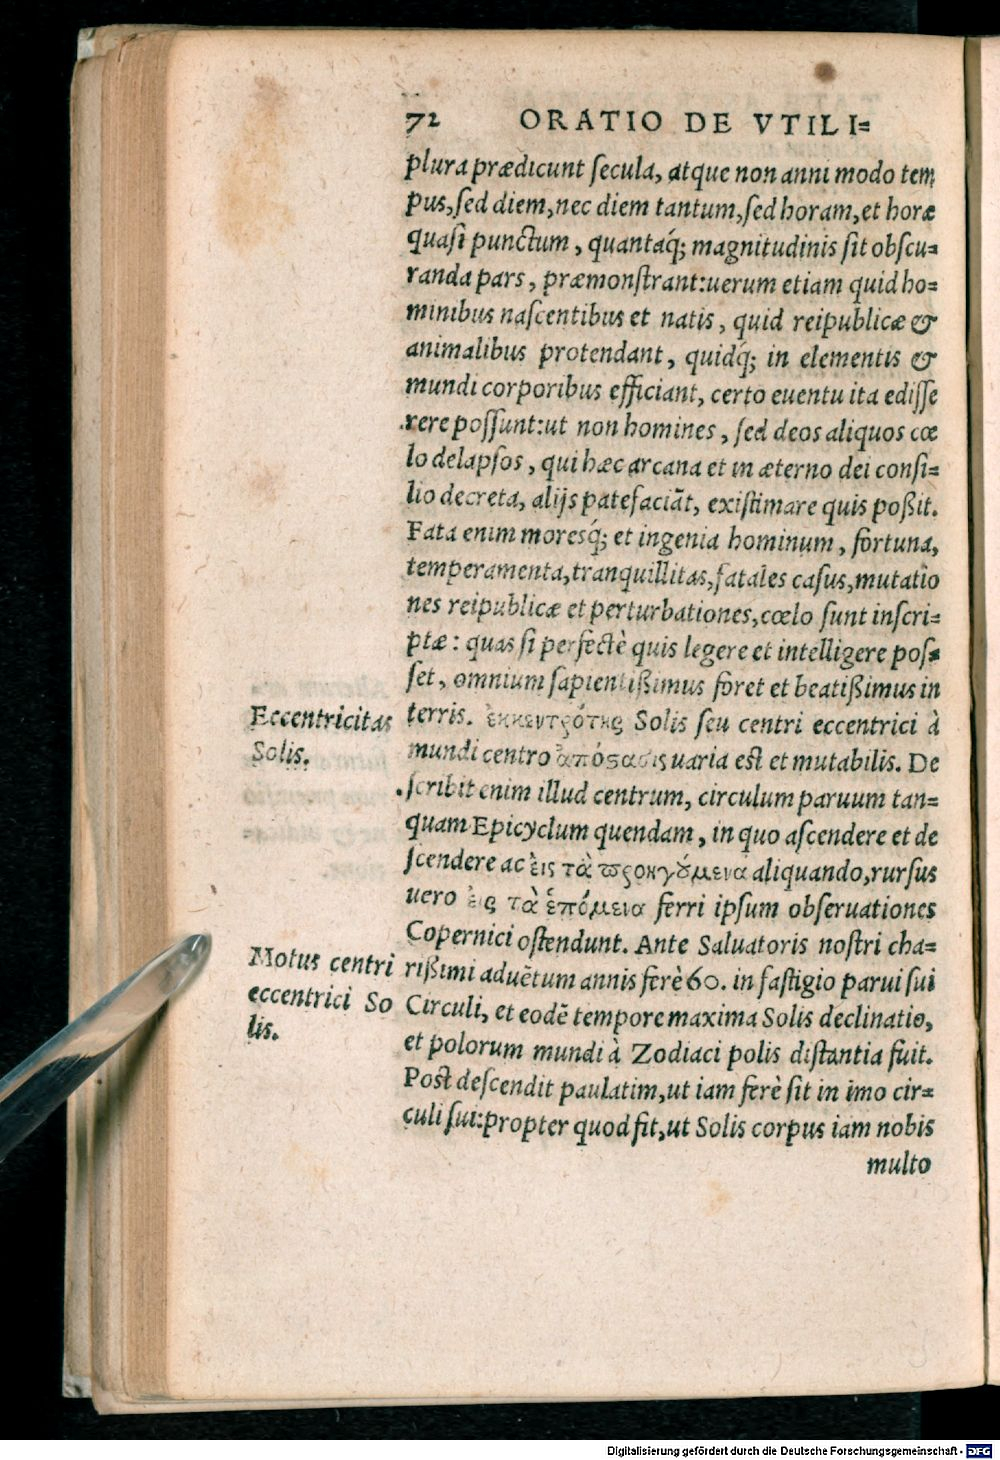 72 ORATIO DE VTILI=
plura prædicunt secula, atque non anni modo tem
pus, sed diem, nec diem tantum, sed horam, et horæ
quasi punctum, quantaq́; magnitudinis sit obscu=
randa pars, præmonstrant: uerum etiam quid ho=
minibus nascentibus et natis, quid reipublicæ &
animalibus protendant, quidq́; in elementis &
mundi corporibus efficiant, certo euentu ita edisse
rere possunt: ut non homines, sed deos aliquos cœ
lo delapsos, qui hæc arcana et in æterno dei consi=
lio decreta, alijs patefaciāt, existimare quis poßit.
Fata enim moresq́; et ingenia hominum, fortuna,
temperamenta, tranquillitas, fatales casus, mutatio
nes reipublicæ et perturbationes, cœlo sunt inscri=
ptæ: quas si perfectè quis legere et intelligere pos=
set, omnium sapientißimus foret et beatißimus in
Eccentricitas
Solis.
terris. ἐκκεντρότης Solis seu centri eccentrici à
mundi centro ἀπόστασις uaria est et mutabilis. De
scribit enim illud centrum, circulum paruum tan=
quam Epicyclum quendam, in quo ascendere et de
scendere ac εἰς τὰ προηγούμενα aliquando, rursus
uero εἰς τὰ ἑπόμενα ferri ipsum obseruationes
Copernici ostendunt. Ante Saluatoris nostri cha=
Motus centri
eccentrici So
lis.
rißimi aduētum annis ferè 60. in fastigio parui sui
Circuli, et eodē tempore maxima Solis declinatio,
et polorum mundi à Zodiaci polis distantia fuit.
Post descendit paulatim, ut iam ferè sit in imo cir=
culi sui: propter quod fit, ut Solis corpus iam nobis
multo
Digitalisierung gefördert durch die Deutsche Forschungsgemeinschaft - DFG